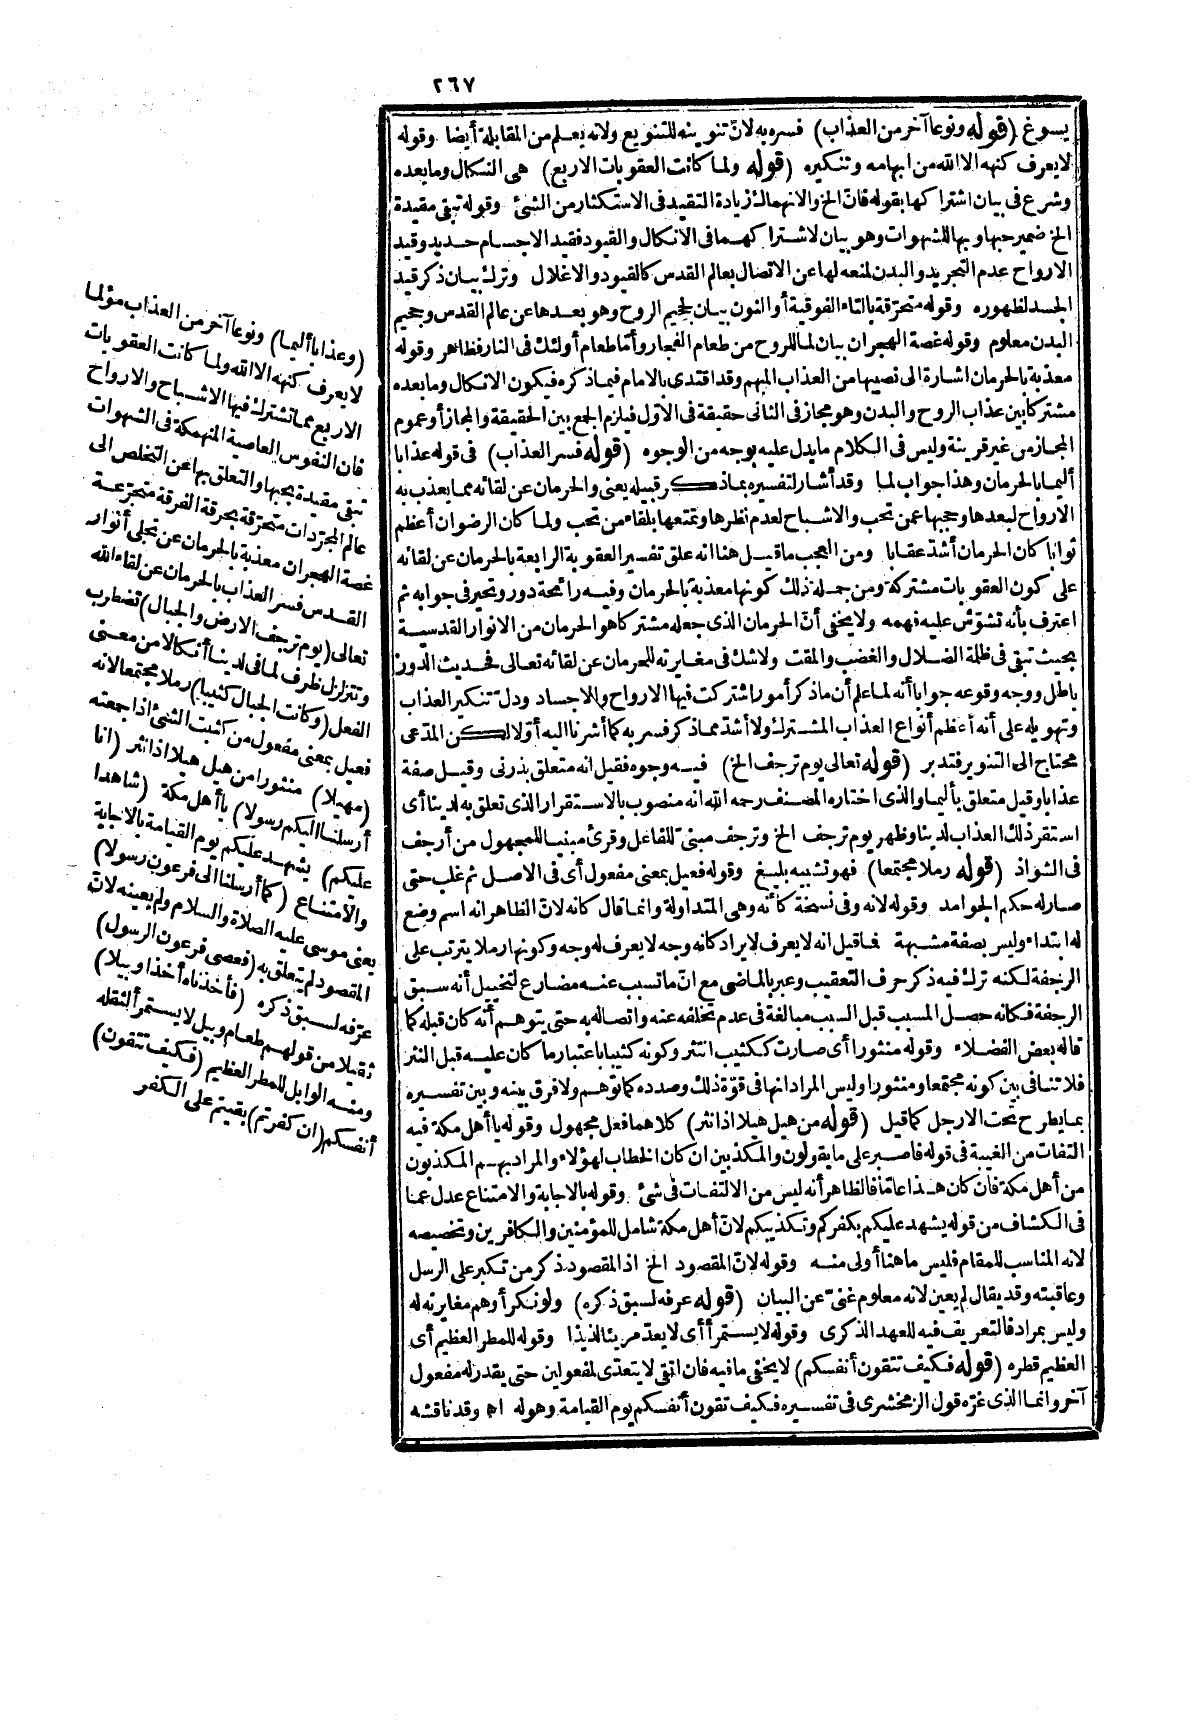 ٢٦٧
يسوغ (قوله ونوعا آخر من العذاب) فسره به لانّ تنوينه للتنويع ولانه يعلم من المقابلة أيضا وقوله
لا يعرف كنهه الا الله من ابهامه وتنكيره (قوله ولما كانت العقوبات الاربع) هى النكال وما بعده
وشرع فى بيان اشتراكها بقوله فانّ الخ والانهماك زيادة التقيد فى الاستكثار من الشئ وقوله تبقى مقيدة
الخ ضمير حبها وبها للشهوات وهو بيان لاشتراكهما فى الانكال والقيود فقيد الاجسام حديد وقيد
الارواح عدم التجريد والبدن لمنعه لها عن الاتصال بعالم القدس كالقيود والاغلال وترك بيان ذكر قيد
الجسد لظهوره وقوله متحرّقة بالتاء الفوقية أو النون بيان لجحيم الروح وهو بعدها عن عالم القدس وجحيم
البدن معلوم وقوله غصة الهجران بيان لما للروح من طعام الفجار وأمّا طعام أولئك فى النار فظاهر وقوله
معذبة بالحرمان اشارة الى نصيبها من العذاب المبهم وقد اقتدى بالامام فيما ذكره فيكون الانكال وما بعده
مشتركا بين عذاب الروح والبدن وهو مجاز فى الثانى حقيقة فى الأوّل فيلزم الجمع بين الحقيقة والمجاز أو عموم
المجاز من غير قرينة وليس فى الكلام ما يدل عليه بوجه من الوجوه (قوله فسر العذاب) فى قوله عذابا
أليما بالحرمان وهذا جواب لما وقد أشار لتفسيره بما ذكر قبيله يعنى والحرمان عن لقائه مما يعذب به
الارواح لبعدها وحجبها عمن تحب والاشباح لعدم نظرها وتمتعها بلقاء من تحب ولما كان الرضوان أعظم
ثوابا كان الحرمان أشدّ عقابا ومن العجب ما قيل هنا انه علق تفسير العقوبة الرابعة بالحرمان عن لقائه
على كون العقوبات مشتركة ومن جملة ذلك كونها معذبة بالحرمان وفيه رائحة دور وتحير فى جوابه ثم
اعترف بأنه تشوّش عليه فهمه ولا يخفى أنّ الحرمان الذى جعله مشتركا هو الحرمان من الانوار القدسية
بحيث تبقى فى ظلمة الضلال والغضب والمقت ولاشك فى مغايرته للحرمان عن لقائه تعالى فحديث الدور
باطل ووجه وقوعه جوابا أنه لما علم أن ما ذكر أمور اشتركت فيها الارواح والاجساد ودلّ تنكير العذاب
وتهويله على أنه أعظم أنواع العذاب المشترك ولا أشدّ مما ذكر فسر به كما أشرنا اليه أوّلا لكن المدّعى
محتاج الى التنوير فتدبر (قوله تعالى يوم ترجف الخ) فيه وجوه فقيل انه متعلق بذرنى وقيل صفة
عذابا وقيل متعلق بأليما والذى اختاره المصنف رحمه الله انه منصوب بالاستقرار الذى تعلق به لدينا أى
استقر ذلك العذاب لدينا وظهر يوم ترجف الخ وترجف مبنىّ للفاعل وقرئ مبنيا للمجهول من أرجف
فى الشواذ (قوله رملا مجتمعا) فهو تشبيه بليغ وقوله فعيل بمعنى مفعول أى فى الاصل ثم غلب حتى
صار له حكم الجوامد وقوله لانه وفى نسخة كأنه وهى المتداولة وانما قال كانه لانّ الظاهر انه اسم وضع
له ابتداء وليس بصفة مشبهة فما قيل انه لا يعرف لايراد كانه وجه لا يعرف له وجه وكونها رملا يترتب على
الرجفة لكنه ترك فيه ذكر حرف التعقيب وعبر بالماضى مع انّ ما تسبب عنه مضارع لتخييل أنه سبق
الرجفة فكانه حصل المسبب قبل السبب مبالغة فى عدم تخلفه عنه واتصاله به حتى يتوهم أنه كان قبله كما
قاله بعض الفضلاء وقوله منثورا أى صارت ككثيب انتثر وكونه كثيبا باعتبار ما كان عليه قبل النثر
فلا تنافى بين كونه مجتمعا ومنثورا وليس المراد انها فى قوّة ذلك وصدده كما توهم ولا فرق بينه وبين تفسيره
بما يطرح تحت الارجل كما قيل (قوله من هيل هيلا اذا نثر) كلاهما فعل مجهول وقوله يا أهل مكة فيه
التفات من الغيبة فى قوله فاصبر على ما يقولون والمكذبين ان كان الخطاب لهؤلاء والمراد بهم المكذبون
من أهل مكة فان كان هذا عامّا فالظاهر أنه ليس من الالتفات فى شئ وقوله بالاجابة والامتناع عدل عما
فى الكشاف من قوله يشهد عليكم بكفركم وتكذيبكم لانّ أهل مكة شامل للمؤمنين والكافرين وتخصيصه
لانه المناسب للمقام فليس ما هنا أولى منه وقوله لانّ المقصود الخ اذ المقصود ذكر من تكبر على الرسل
وعاقبته وقد يقال لم يعين لانه معلوم غنىّ عن البيان (قوله عرفه لسبق ذكره) ولو نكر أوهم مغايرته له
وليس بمراد فالتعريف فيه للعهد الذكرى وقوله لا يستمرأ أى لا يعدّ مريئا لذيذا وقوله للمطر العظيم أى
العظيم قطره (قوله فكيف تتقون أنفسكم) لا يخفى ما فيه فان اتقى لا يتعدّى لمفعولين حتى يقدر له مفعول
آخر وانما الذى غرّه قول الزمخشرى فى تفسيره فكيف تقون أنفسكم يوم القيامة وهوله اه وقد ناقشه
(وعذابا أليما) ونوعا آخر من العذاب مؤلما
لا يعرف كنهه الا الله ولما كانت العقوبات
الاربع مما تشترك فيها الاشباح والارواح
فان النفوس العاصية المنهمكة فى الشهوات
تبقى مقيدة بحبها والتعلق بها عن التخلص الى
عالم المجرّدات متحرّقة بحرقة الفرقة متجرّعة
غصة الهجران معذبة بالحرمان عن تجلى أنوار
القدس فسر العذاب بالحرمان عن لقاء الله
تعالى (يوم ترجف الارض والجبال) تضطرب
وتتزلزل ظرف لما فى لدينا أنكالا من معنى
الفعل (وكانت الجبال كثيبا) رملا مجتمعا لانه
فعيل بمعنى مفعول من كثبت الشئ اذا جمعته
(مهيلا) منثورا من هيل هيلا اذا نثر (انا
أرسلنا اليكم رسولا) يا أهل مكة (شاهدا
عليكم) يشهد عليكم يوم القيامة بالاجابة
والامتناع (كما أرسلنا الى فرعون رسولا)
يعنى موسى عليه الصلاة والسلام ولم يعينه لانّ
المقصود لم يتعلق به (فعصى فرعون الرسول)
عرّفه لسبق ذكره (فأخذناه أخذا وبيلا)
ثقيلا من قولهم طعام وبيل لا يستمرأ لثقله
ومنه الوابل للمطر العظيم (فكيف تتقون)
أنفسكم (ان كفرتم) بقيتم على الكفر